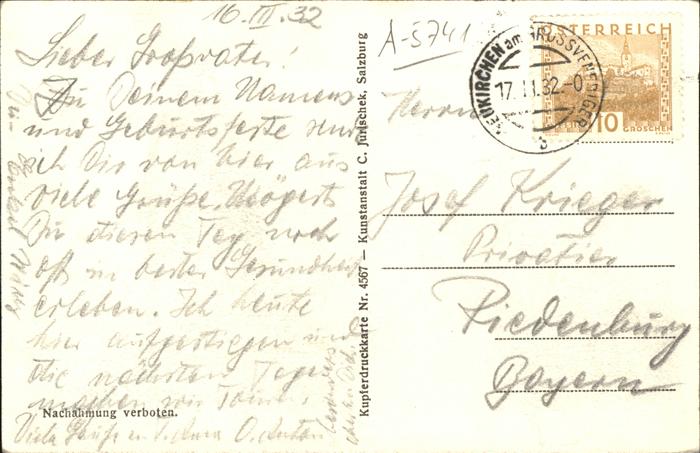 16.III.32
Lieber Großvater!
Zu Deinem Namens
und Geburtsfeste
ich Dir von hier aus
viele Grüße. Mögest
Du diesen Tag noch
oft in bester Gesundheit
erleben. Ich heute
hier aufgestiegen und
die nächsten Tage
machen wir
Viele Grüße an
Nachahmung verboten.
Kupferdruckkarte Nr. 4567 – Kunstanstalt C. Jurischek, Salzburg
A-5741
ÖSTERREICH
10 GROSCHEN
NEUKIRCHEN am GROSSVENEDIGER
17.III.32.-0
b
Herrn
Josef Krieger
Privatier
Riedenburg
Bayern